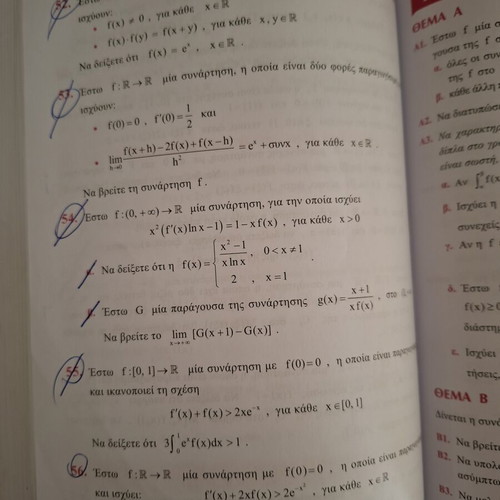 52. Έστω
ισχύουν:
• f(x) ≠ 0 , για κάθε x ∈ ℝ
• f(x)·f(y) = f(x+y) , για κάθε x, y ∈ ℝ
Να δείξετε ότι f(x) = eˣ , x ∈ ℝ .
53. Έστω f : ℝ → ℝ μία συνάρτηση, η οποία είναι δύο φορές
ισχύουν:
• f(0) = 0 , f'(0) = 1/2 και
• lim h→0 (f(x+h) − 2f(x) + f(x−h))/h² = eˣ + συνx , για κάθε x ∈ ℝ .
Να βρείτε τη συνάρτηση f .
54. Έστω f : (0, +∞) → ℝ μία συνάρτηση, για την οποία ισχύει
x²(f'(x) ln x − 1) = 1 − x f(x) , για κάθε x > 0
Να δείξετε ότι η f(x) = { (x² − 1)/(x ln x) , 0 < x ≠ 1
2 , x = 1 .
Έστω G μία παράγουσα της συνάρτησης g(x) = (x+1)/(x f(x)) , στο
Να βρείτε το lim x→+∞ [G(x+1) − G(x)] .
55. Έστω f : [0, 1] → ℝ μία συνάρτηση με f(0) = 0 , η οποία είναι
και ικανοποιεί τη σχέση
f'(x) + f(x) > 2xe⁻ˣ , για κάθε x ∈ [0, 1]
Να δείξετε ότι 3∫₀¹ eˣ f(x)dx > 1 .
56. Έστω f : ℝ → ℝ μία συνάρτηση με f(0) = 0 , η οποία είναι
και ισχύει: f'(x) + 2xf(x) > 2e^(−x²) , για κάθε x ∈ ℝ
ΘΕΜΑ Α
Α1. Έστω f μία
γουσα της f
α. όλες οι συν
της f στο
β. κάθε άλλη
Α2. Να διατυπώσε
Α3. Να χαρακτηρ
δίπλα στο γρ
είναι σωστή,
α. Αν ∫
β. Ισχύει η
συνεχείς
γ. Αν η f
δ. Έστω
f(x) ≥ 0
διάστημ
ε. Ισχύει
τήσεις,
ΘΕΜΑ Β
Δίνεται η συνά
Β1. Να βρείτε
Β2. Να υπολ
ασύμπτω
Β3. Να